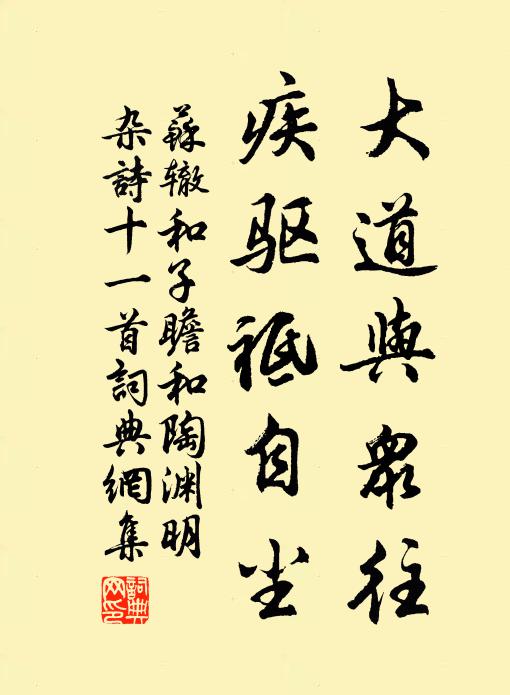 大道與眾往
疾驱祗自尘
蘇辙和子瞻和陶渊明
杂詩十一首詞典網集
詞典网印